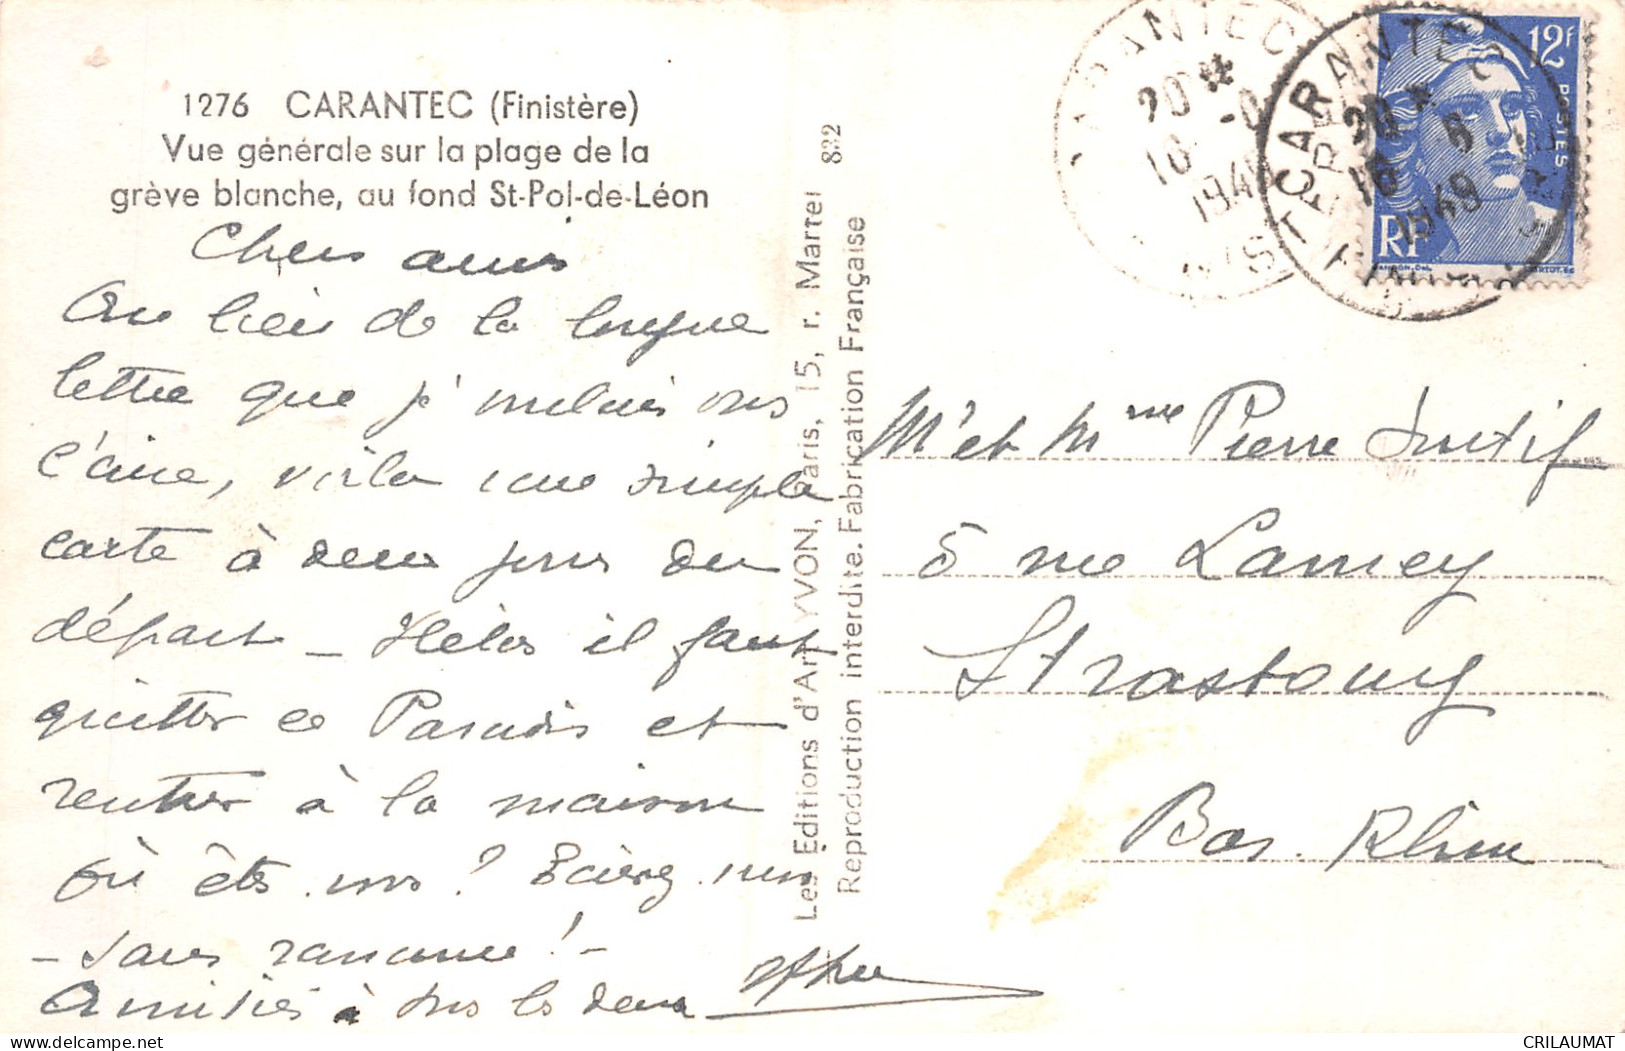 1276 CARANTEC (Finistère)
Vue générale sur la plage de la
grève blanche, au fond St-Pol-de-Léon
Chers amis
Au lieu de la longue
lettre que je voulais vous
écrire, voilà une simple
carte à deux jours du
départ - Hélas il faut
quitter ce Paradis et
rentrer à la maison
où êtes vous ? Ecrivez nous
- sans rancune ! -
Amitiés à vous les deux
Les Editions d'Art YVON, Paris, 15, r. Martel 832
Reproduction interdite. Fabrication Française
CARANTEC
20 *
1949
CARANTEC
20 *
16 6
1949
FINISTERE
12f
POSTES
RF
Mr et Mme Pierre
5 rue Lamey
Strasbourg
Bas. Rhin
CRILAUMAT